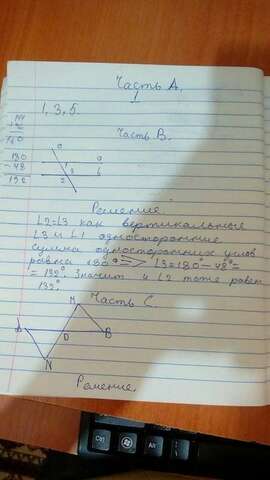 Часть А.
1
1, 3, 5.
Часть В.
180
- 48
132
с
а
1
3
2
б
Решение.
∠2=∠3 как вертикальные
∠3 и ∠1 односторонние
сумма односторонних углов
равна 180° => ∠3=180°-48°=
= 132°. Значит и ∠2 тоже равен
132°.
Часть С.
М
А
D
В
N
Решение.
Ctrl
Alt